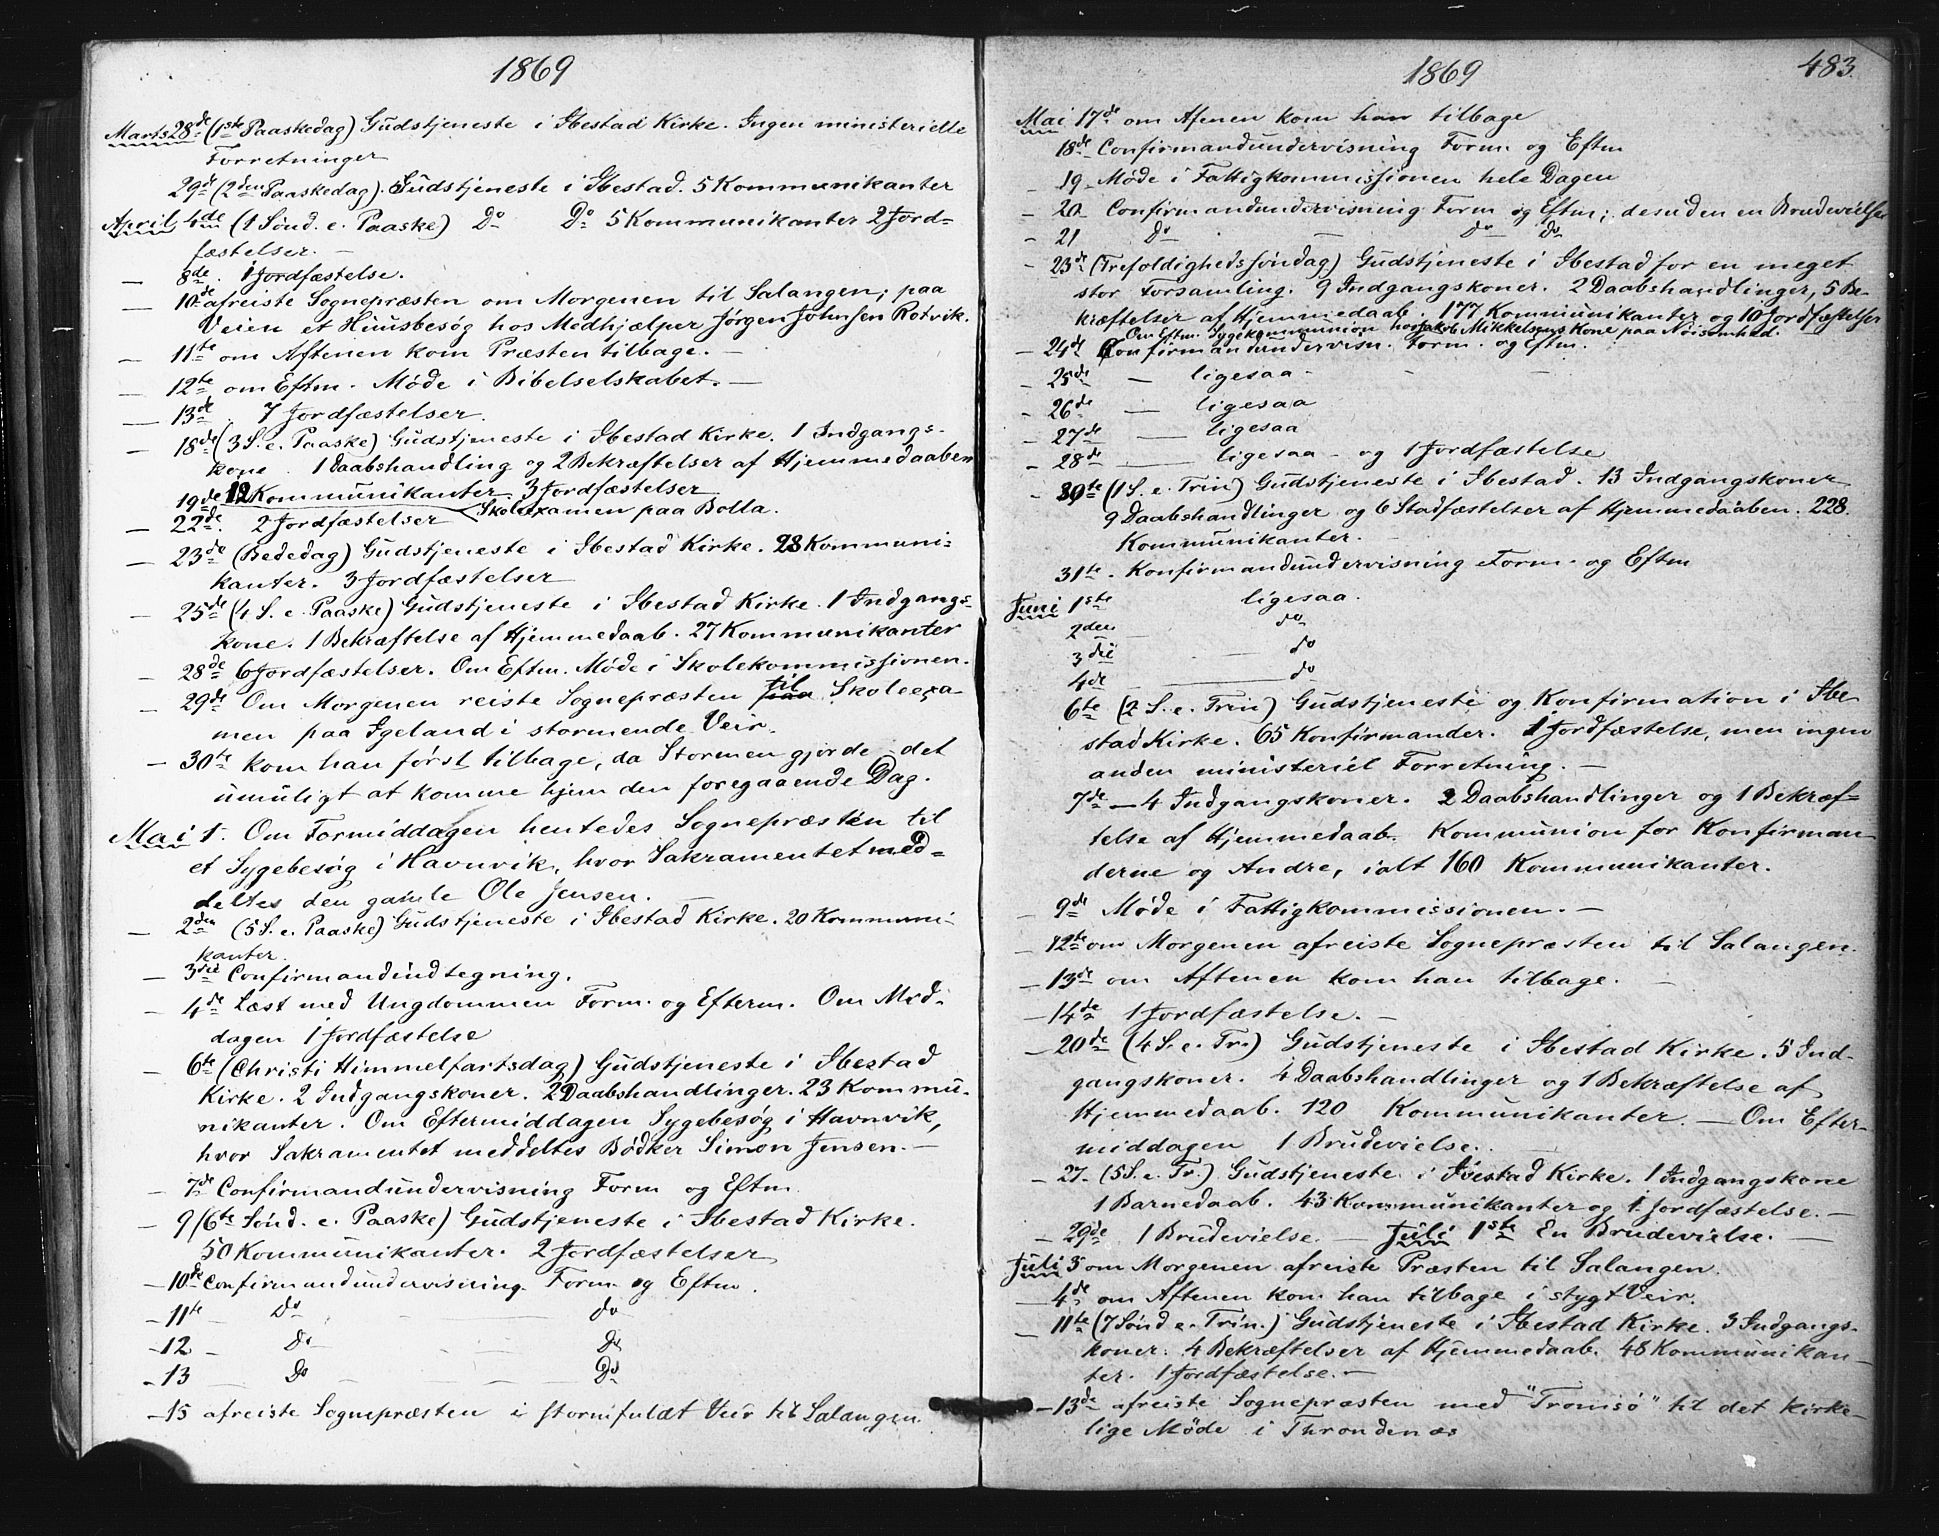 1869
Marts 28de (1ste Paaskedag) Gudstjeneste i Ibestad Kirke. Ingen ministerielle
Forretninger
29de (2den Paaskedag). Gudstjeneste i Ibestad. 5 Kommunikanter
April 4de (1 Sønd. e. Paaske) Do Do 5 Kommunikanter 2 Jord-
fæstelser. -
- 8de. 1 Jordfæstelse.
- 10de afreiste Sognepræsten om Morgenen til Salangen; paa
Veien et Huusbesøg hos Medhjælper Jørgen Johnsen Rotvik.
- 11te om Aftenen kom Præsten tilbage. -
- 12te om Eftm. Møde i Bibelselskabet. -
- 13de. 7 Jordfæstelser.
- 18de (3 S. e. Paaske) Gudstjeneste i Ibestad Kirke. 1 Indgangs-
kone. 1 Daabshandling og 2 Bekræftelser af Hjemmedaaben
12 Kommunikanter. 3 Jordfæstelser
19de Skoleexamen paa Bolla.
- 22de. 2 Jordfæstelser
- 23de (Bededag) Gudstjeneste i Ibestad Kirke. 28 Kommuni-
kanter. 3 Jordfæstelser
- 25de (4 S. e. Paaske) Gudstjeneste i Ibestad Kirke. 1 Indgangs-
kone. 1 Bekræftelse af Hjemmedaab. 27 Kommunikanter
- 28de 6 Jordfæstelser. Om Eftm. Møde i Skolekommissionen.
- 29de Om Morgenen reiste Sognepræsten paa til Skoleexa-
men paa Igeland i stormende Veir.
- 30te kom han først tilbage, da Stormen gjorde det
umuligt at komme hjem den foregaaende Dag.
Mai 1. Om Formiddagen hentedes Sognepræsten til
et Sygebesøg i Havnvik, hvor Sakramentet med-
deltes den gamle Ole Jensen. -
- 2den (5 S. e. Paaske) Gudstjeneste i Ibestad Kirke. 20 Kommuni-
kanter.
- 3die Confirmandindtegning.
- 4de Læst med Ungdommen Form. og Efterm. Om Mid-
dagen 1 Jordfæstelse
- 6te (Christi Himmelfartsdag) Gudstjeneste i Ibestad
Kirke. 2 Indgangskoner. 2 Daabshandlinger. 23 Kommu-
nikanter. Om Eftermiddagen Sygebesøg i Havnvik,
hvor Sakramentet meddeltes Bødker Simon Jensen. -
- 7de Confirmandundervisning Form og Eftm.
- 9 (6te Sønd. e. Paaske) Gudstjeneste i Ibestad Kirke.
50 Kommunikanter. 2 Jordfæstelser
- 10de Confirmandundervisning. Form og Eftm.
- 11te Do - - do
- 12 Do - - Do
- 13 - Do - - Do
- 15 afreiste Sognepræsten i stormfuldt Veir til Salangen.
1869
483.
Mai 17de om Aftenen kom han tilbage
18de Confirmandundervisning Form. og Eftm
- 19. Møde i Fattigkommissionen hele Dagen
- 20 Confirmandundervisning Form og Eftm; desuden en Brudevielse
- 21 do - do do
- 23de (Trefoldighedssøndag) Gudstjeneste i Ibestad for en meget
stor Forsamling. 9 Indgangskoner. 2 Daabshandlinger, 5 Be-
kræftelser af Hjemmedaab. 177 Kommunikanter og 10 Jordfæstelser
Om Eftm. Sygekommunion hos Jakob Mikkelsens Kone paa
- 24de Confirmandundervisn. Form. og Eftm.
- 25de - ligesaa -
- 26de - ligesaa
- 27de - ligesaa
- 28de - ligesaa - og 1 Jordfæstelse
- 30te (1 S. e. Trin) Gudstjeneste i Ibestad. 13 Indgangskoner
9 Daabshandlinger og 6 Stadfæstelser af Hjemmedaaben. 228.
Kommunikanter. -
31te. Konfirmandundervisning Form. og Eftm
Juni 1ste ligesaa.
2den do
3die - do
4de - do
6te (2 S. e. Trin) Gudstjeneste og Konfirmation i Ibe
stad Kirke. 65 Konfirmander. 1 Jordfæstelse, men ingen
anden ministeriel Forretning. -
7de - 4 Indgangskoner. 2 Daabshandlinger og 1 Bekræf-
telse af Hjemmedaab. Kommunion for Konfirman-
derne og Andre, ialt 160 Kommunikanter.
- 9de Møde i Fattigkommissionen. -
- 12te om Morgenen afreiste Sognepræsten til Salangen.
- 13de om Aftenen kom han tilbage. -
- 14de 1 Jordfæstelse. -
- 20de (4 S. e. Tr.) Gudstjeneste i Ibestad Kirke. 5 Ind-
gangskoner. 4 Daabshandlinger og 1 Bekræftelse af
Hjemmedaab. 120 Kommunikanter. - Om Efter-
middagen 1 Brudevielse.
- 27. (5 S. e. Tr.) Gudstjeneste i Ibestad Kirke. 1 Indgangskone
1 Barnedaab. 43 Kommunikanter og 1 Jordfæstelse. -
- 29de 1 Brudevielse. - Juli 1ste En Brudevielse. -
Juli 3 om Morgenen afreiste Præsten til Salangen.
- 4de om Aftenen kom han tilbage i stygt Veir.
- 11te (7 Sønd e. Trin.) Gudstjeneste i Ibestad Kirke. 3 Indgangs-
koner. 4 Bekræftelser af Hjemmedaab. 48 Kommunikan-
ter. 1 Jordfæstelse. -
- 13de afreiste Sognepræsten med "Tromsö" til det kirke-
lige Møde i Throndenæs